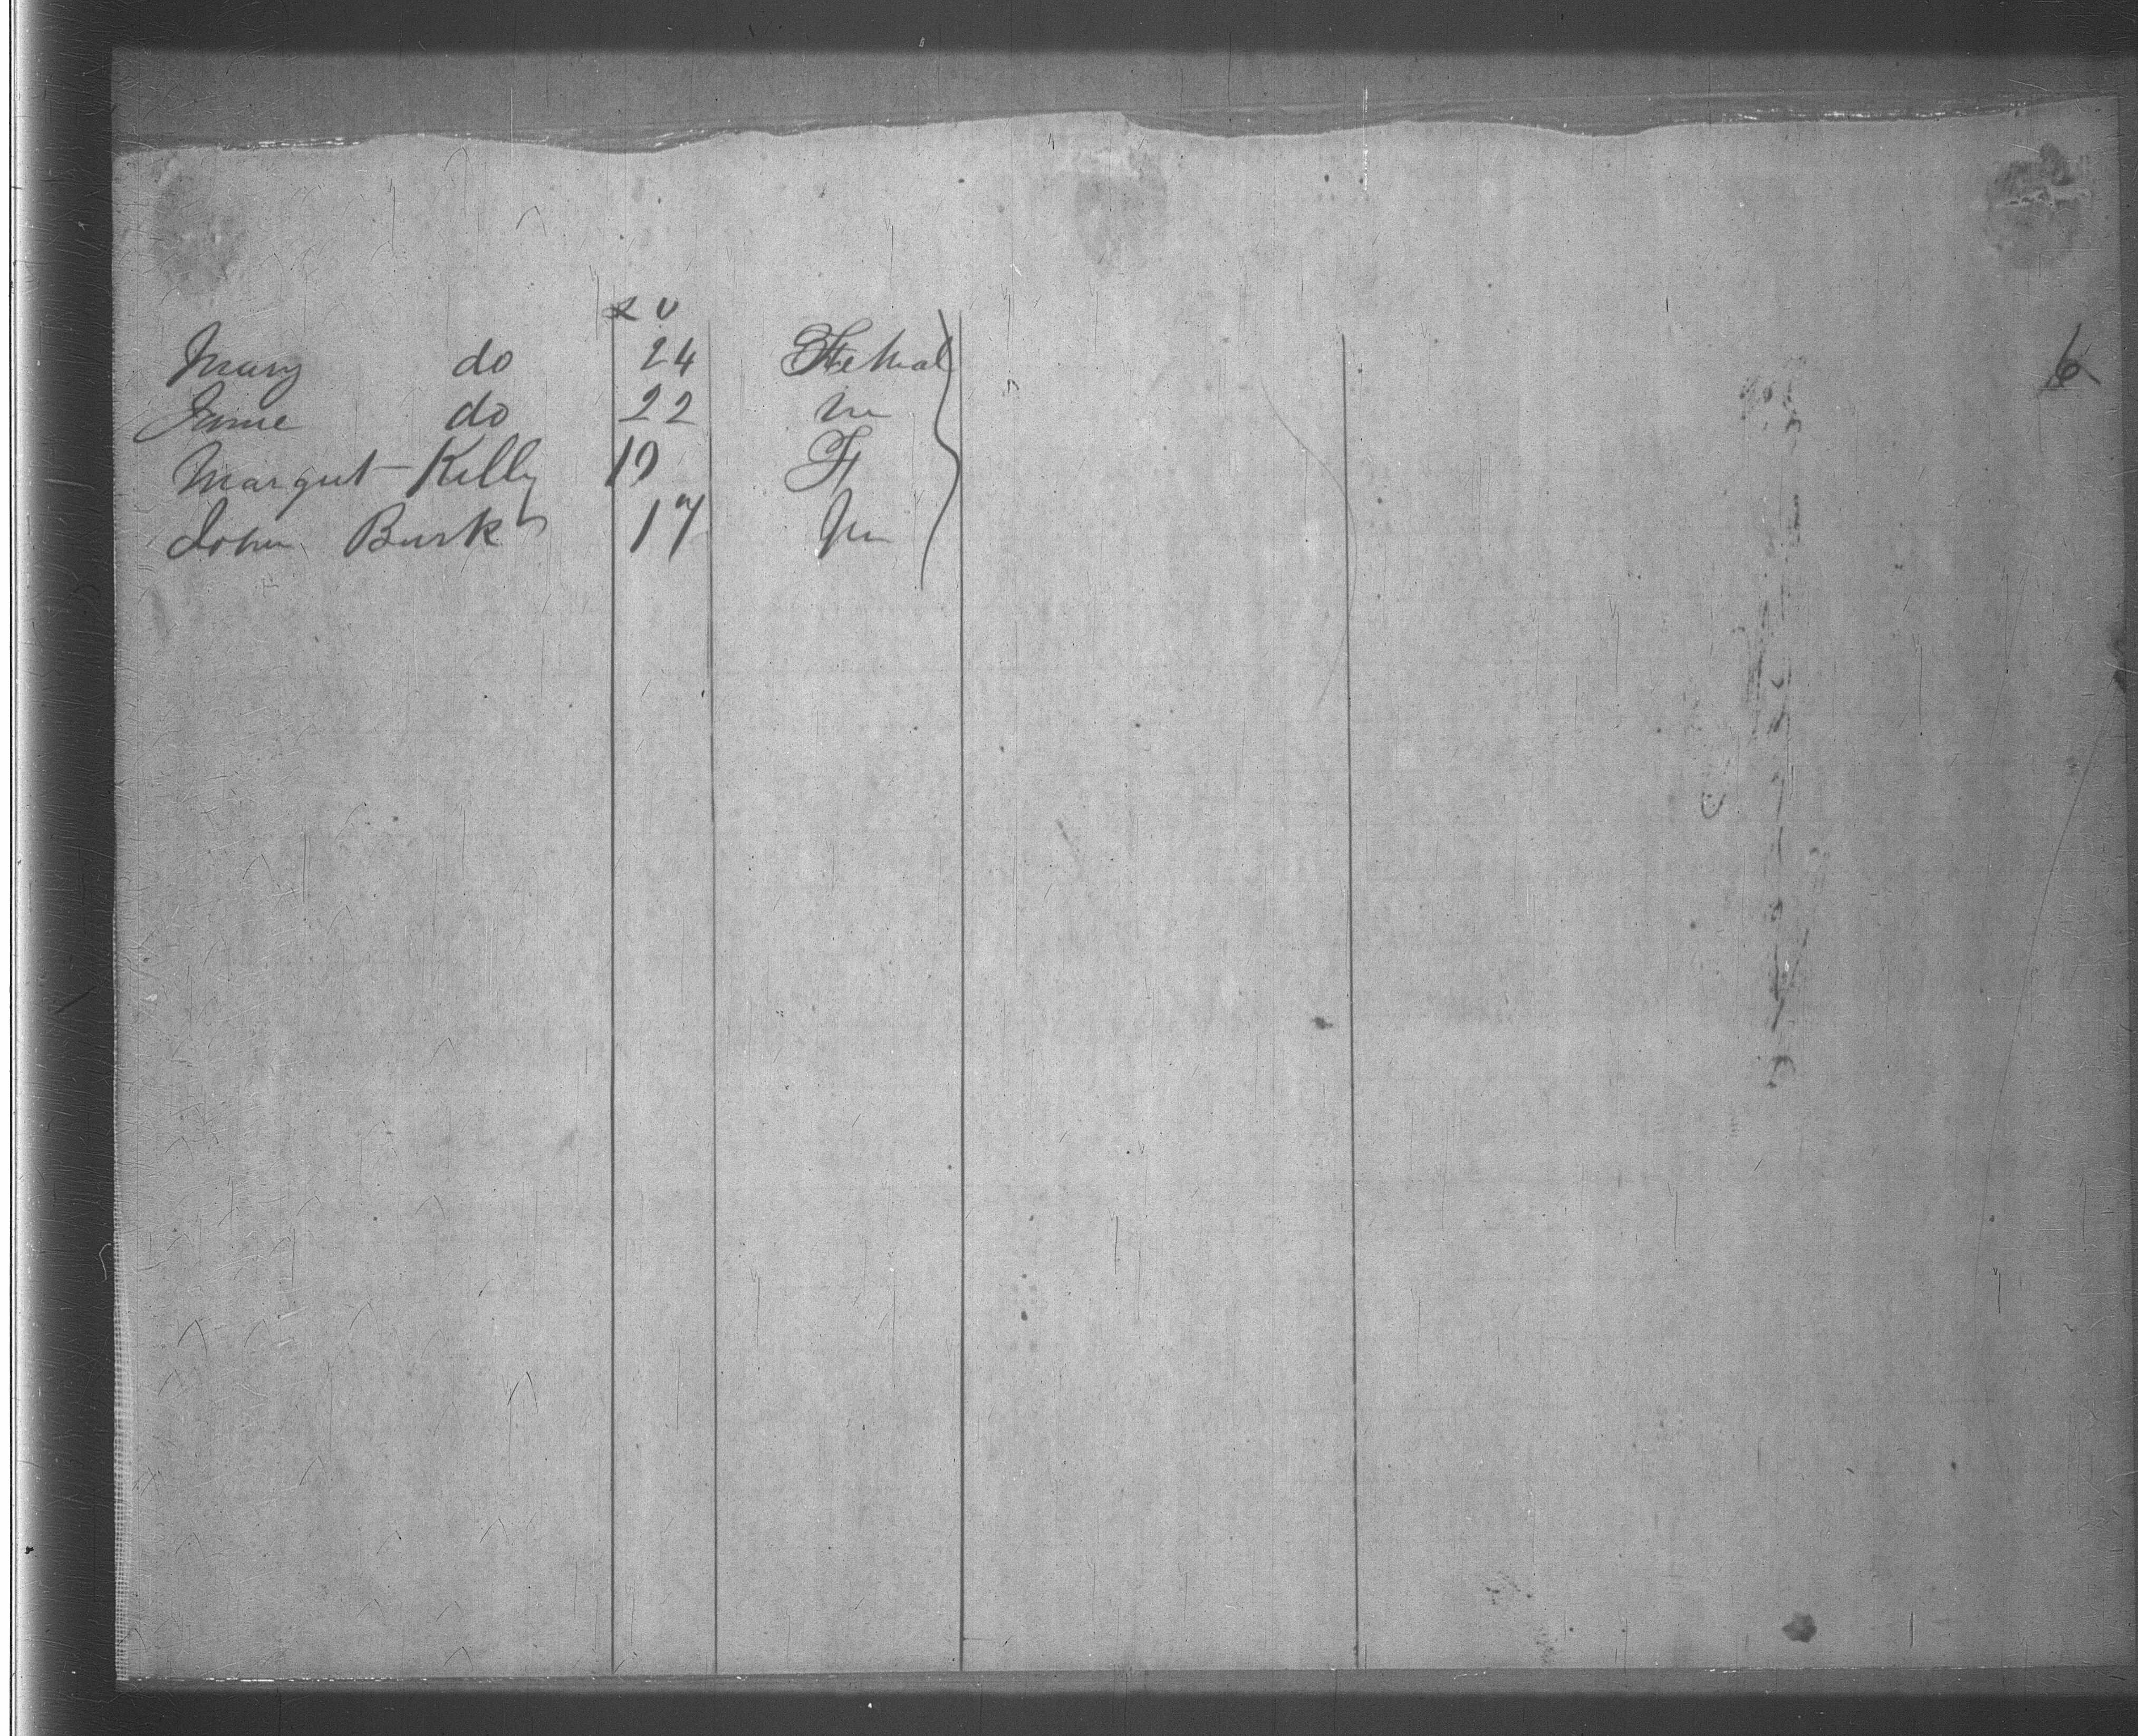 Mary do 24 Femal
Jame do 22 m
Margret Kelly 19 F
John Burk 17 m
6